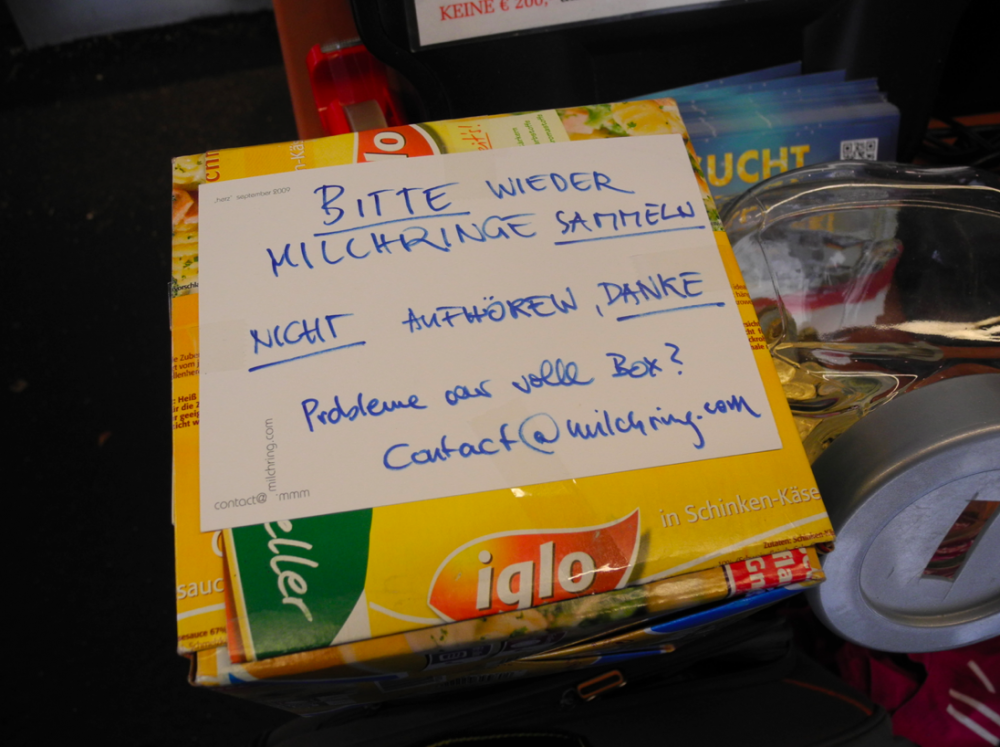 KEINE € 200,
UCHT
„held" september 2009
BITTE WIEDER
MILCHRINGE SAMMELN
NICHT AUFHÖREN, DANKE
Probleme oder volle Box?
Contact@milchring.com
contact@ milchring.com
mmm
in Schinken-Käse
eller
iglo
sauc
esauce 67%